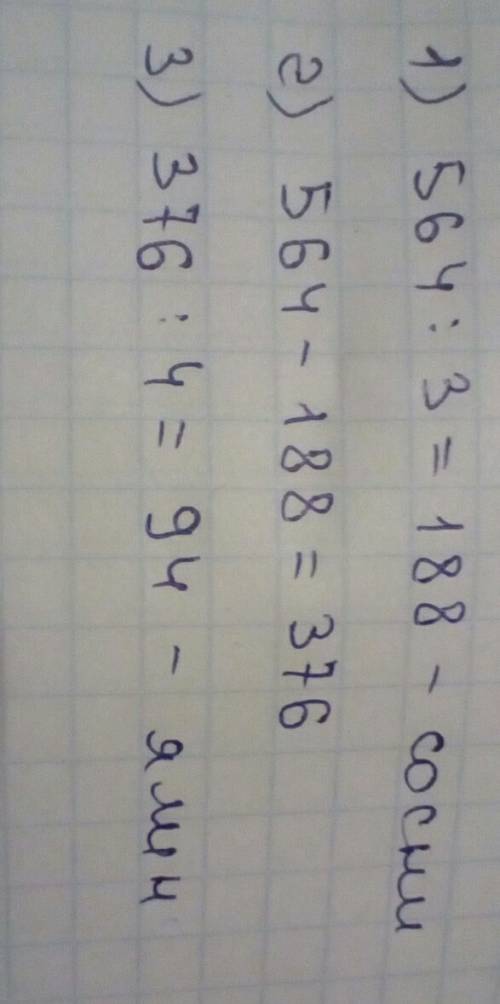 1) 564 : 3 = 188 - сосни
2) 564 - 188 = 376
3) 376 : 4 = 94 - ялин